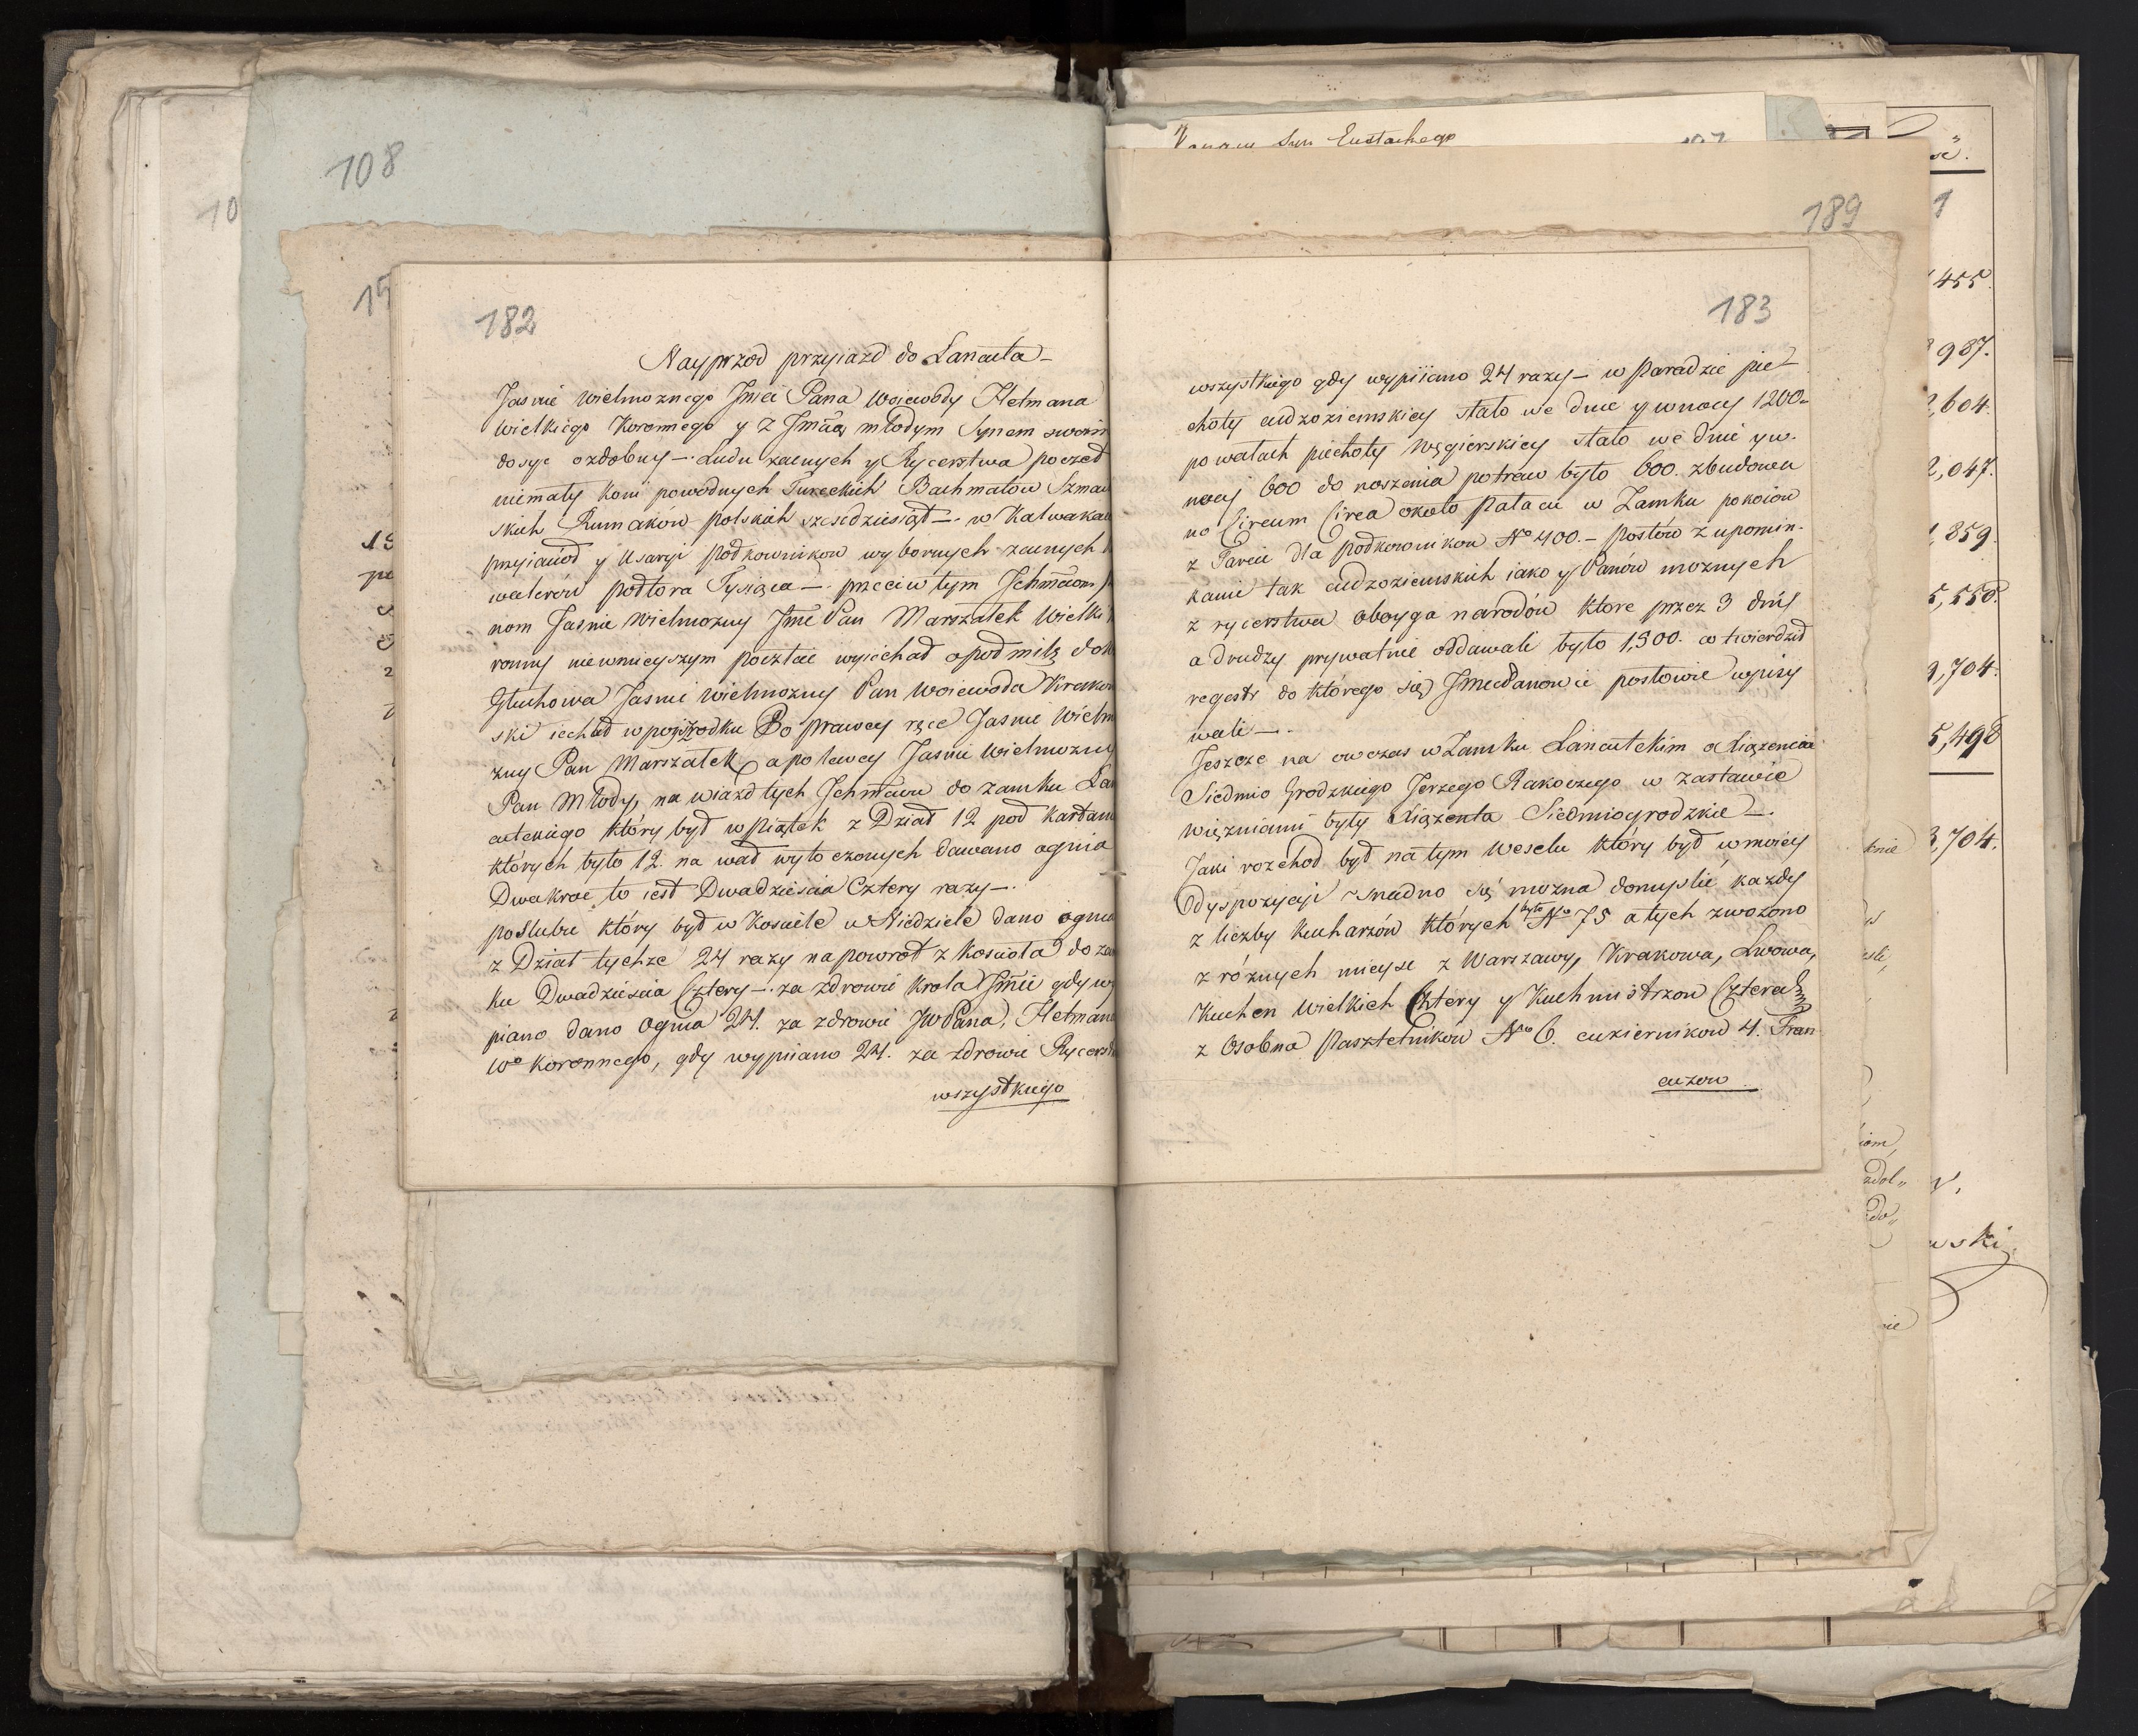 108
189
182
Nayprzod przyiazd do Lancuta –
Jasnie wielmoznego Jmci Pana Woiewody Hetmana
wielkiego Koronnego y z Jmcią młodym Synem swoim
dosyc ozdobny –. Ludu zacnych y Rycerstwa poczed
niemały koni powodnych Tureckich Bachmatow
skich Rumaków polskich szescdziesiąt –. w
przyiaciod y Usaryi Podkownikow wybornych zacnych
walerow podtora Tysiąca –. przeciw tym Jchmciom
nom Jasnie Wielmozny Jmc Pan Marszałek Wielki
ronny niewmieyszym poczcie wyiechad opodmilę do
Głuchowa Jasnie wielmozny Pan Woiewoda Krakow
ski iechad wposzrodku Po prawey ręce Jasnie Wielm
zny Pan Marszatek, a po lewey Jasnie Wielmozny
Pan Młody, na wiazd tych Jchmciow do zamku Lan
cutckiego który byd w Piątek z Dziad 12 pod kartami
których było 12. na wad wytoczonych dawano ognia
Dwakroc to iest Dwadziescia Cztery razy –.
po Slubie który byd w Kosciele w Niedziele dano ognia
z Dziat tychze 24 razy na powrot z Kosciota do zam
ku Dwadziescia Cztery –. za zdrowie Krola Jmci gdy wy
piano dano Ognia 24. za zdrowie JW Pana, Hetmana
Wo Koronnego, gdy wypiiano 24. za zdrowie Rycerst
wszystkiego
183
wszystkiego gdy wypiiano 24 razy – w Paradzie pie
choty cudzoziemskiey stało we dnie y w nocy 1200 –
po watach piechoty węgierskiey stato we dnie y w.
nocy 600 do noszenia potraw było 600. zbudowa
no Circum Circa około Pałacu w Zamku pokoiow
z Tarcic dla Podkownikow No 400. – Postów z upomin.
kami tak cudzoziemskich iako y Panów moznych
z rycerstwa oboyga narodów ktore przez 3 dni
a drudzy prywatnie oddawali było 1,300. co twierdzid
regestr do którego się Jmc Panowie postowie wpisy
wali –.
Jeszcze na owczas w Zamku Lancutckim o Xiązencia
Siedmio Grodzkiego Jerzego Rakoczego w zastawie
więzniami były Xiązenta Siedmiogrodzkie –.
Jaki rozchod byd na tym weselu który byd w moiey
Dyspozycyi snadno się mozna domyslic kazdy
z liczby kucharzów których było No 75 a tych zwozono
z róznych mieysc z Warszawy, Krakowa, Lwowa,
Kuchen Wielkich Cztery y Kuchmistrzow Czterech
z Osobna Pasztetników No 6. cuziernikow 4. Fran
cuzow